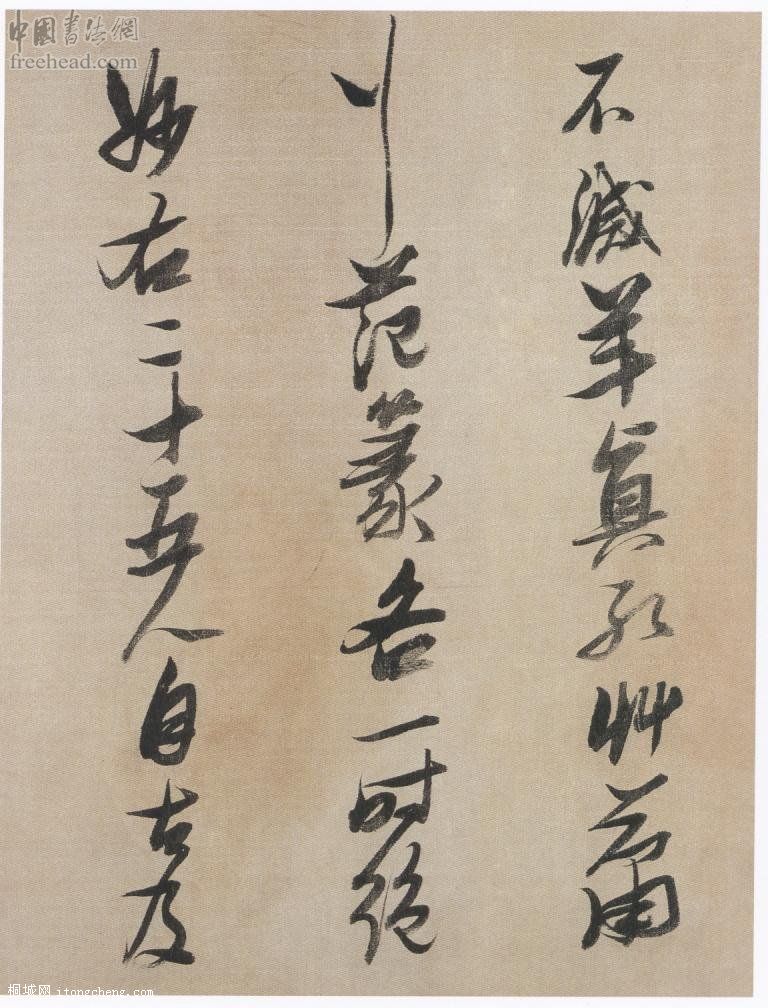 中國書法網
freehead.com
不減羊真孔艸蕭
行范篆各一時絕
妙右二十五人自古及
桐城网 itongcheng.com